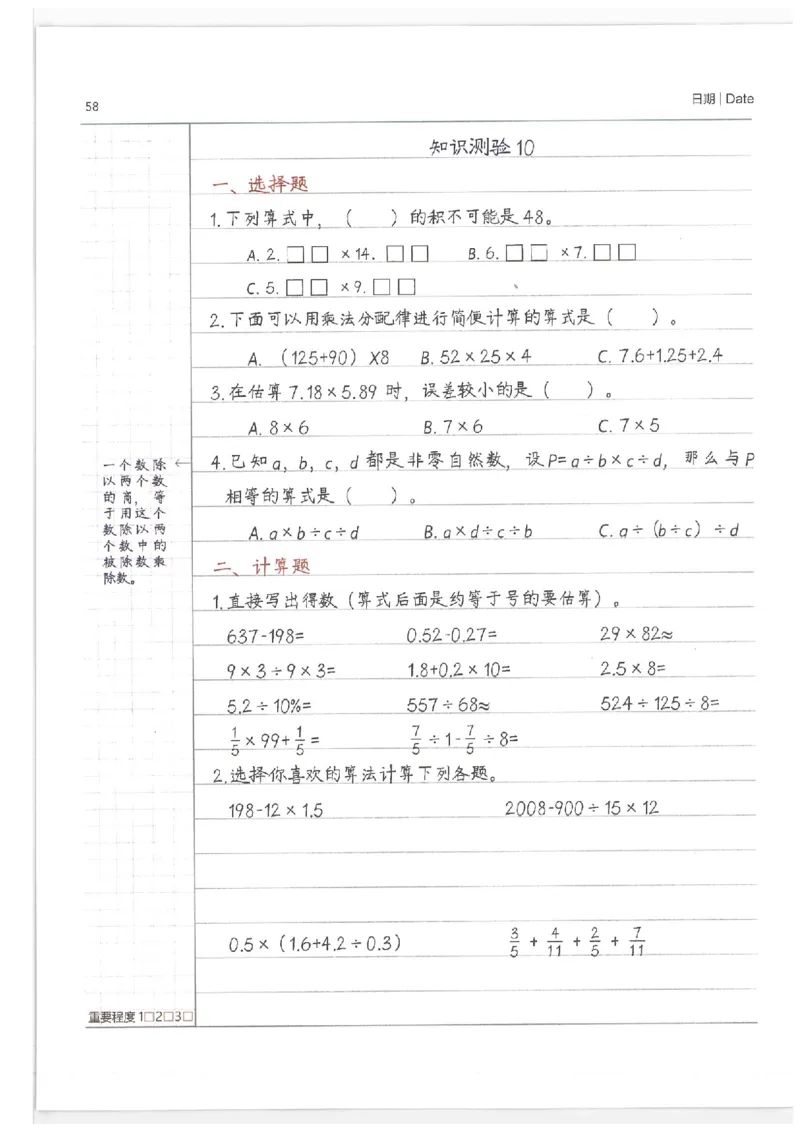 58
日期 | Date
知识测验10
一、选择题
1.下列算式中，（ ）的积不可能是48。
A. 2.□□×14.□□ B. 6.□□×7.□□
C. 5.□□×9.□□
2.下面可以用乘法分配律进行简便计算的算式是（ ）。
A.（125+90）×8 B. 52×25×4 C. 7.6+1.25+2.4
3.在估算7.18×5.89时，误差较小的是（ ）。
A. 8×6 B. 7×6 C. 7×5
4.已知a，b，c，d都是非零自然数，设P=a÷b×c÷d，那么与P
相等的算式是（ ）。
A. a×b÷c÷d B. a×d÷c÷b C. a÷（b÷c）÷d
一个数除←
以两个数
的商，等
于用这个
数除以两
个数中的
被除数乘
除数。
二、计算题
1.直接写出得数（算式后面是约等于号的要估算）。
637-198= 0.52-0.27= 29×82≈
9×3÷9×3= 1.8+0.2×10= 2.5×8=
5.2÷10%= 557÷68≈ 524÷125÷8=
1/5×99+1/5= 7/5÷1-7/5÷8=
2.选择你喜欢的算法计算下列各题。
198-12×1.5 2008-900÷15×12
0.5×（1.6+4.2÷0.3） 3/5+4/11+2/5+7/11
重要程度 1□2□3□